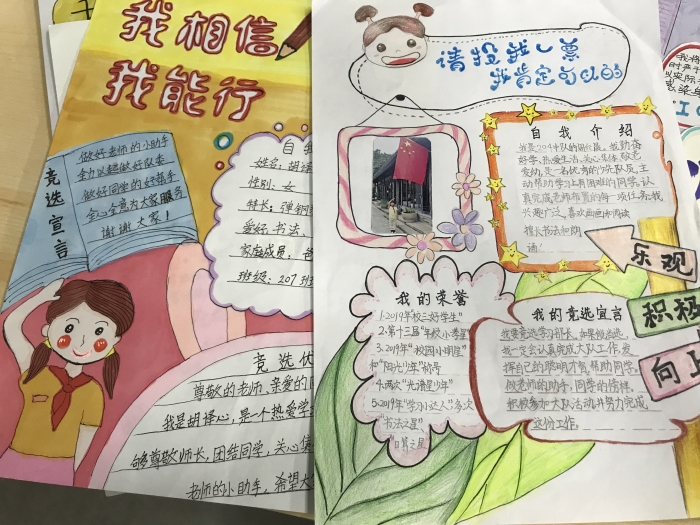 我相信
我能行
竞选宣言
做好老师的小助手
全力以赴做好队委
做好同学的好帮手
全心全意为大家服务
谢谢大家！
自我
性别：女
爱好：书法
家庭成员：爸
班级：207班
竞选优
尊敬的老师、亲爱的同
我是胡译心，是一个热爱学
够尊敬师长，团结同学，关心集
老师的小助手，希望大
请投我一票
我肯定可以的
自我介绍
好学，热爱生活，关心集体，敬老
爱幼，是一名优秀的少先队员，主
动帮助学习上有困难的同学，认
真完成老师布置的每一项任务，我
兴趣广泛，喜欢画画和阅读
擅长书法和朗
诵！
乐观
积极
向上
我的荣誉
1.2019年校三好学生"
2.第十三届"
3.2019年"校园小明星"
称号
5.2019年"学习小达人"多次
"书法之星"
"口算之星"
我的竞选宣言
我要竞选学习部长，如果我当选，
我一定会认真完成大队工作，发
挥自己的聪明才智，帮助同学。
做老师的助手，同学的榜样。
积极参加大队活动并努力完成
这份工作。